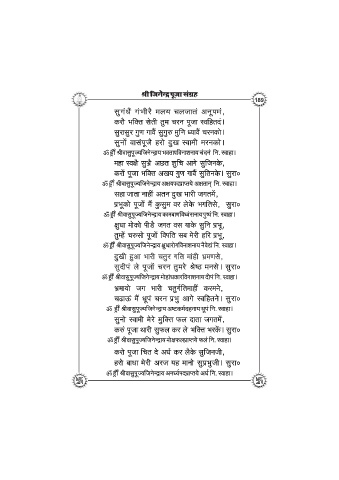 श्री जिनेन्द्र पूजा संग्रह
189
सुगंधै गंभीरै मलय चलजालं अनूपमं,
करौ भक्ति सेती तुम चरन पूजा स्वहितदं।
सुरासुर गुण गावैं सुगुरु मुनि ध्यावैं चरनको।
सुनौं वासंपूजै हरो दुख स्वामी मरनको।
ॐ ह्रीं श्रीवासुपूज्यजिनेन्द्राय भवतापविनाशनाय चंदनं नि. स्वाहा।
महा स्वक्षे सुभ्रे अछत शुचि आगे सुजिनके,
करों पूजा भक्ति अखय गुण पावैं सुतिनके। सुरा०
ॐ ह्रीं श्रीवासुपूज्यजिनेन्द्राय अक्षयपदप्राप्तये अक्षतान् नि. स्वाहा।
सहा जाता नाहीं अतन दुख भारी जगतमें,
प्रभुको पूजों मैं कुसुम वर लेके भगतिसे, सुरा०
ॐ ह्रीं श्रीवासुपूज्यजिनेन्द्राय कामबाणविध्वंसनाय पुष्पं नि. स्वाहा।
क्षुधा मोको पीडे जगत वस याके सुनि प्रभू,
तुम्हें चरुसो पूजों विपति सब मेरी हरि प्रभु,
ॐ ह्रीं श्रीवासुपूज्यजिनेन्द्राय क्षुधारोगविनाशनाय नैवेद्यं नि. स्वाहा।
दुखी हुआ भारी चतुर गति मांही भ्रमणसे,
सुदीपं ले पूजों चरन तुमरे श्रेष्ठ मनसे। सुरा०
ॐ ह्रीं श्रीवासुपूज्यजिनेन्द्राय मोहांधकारविनाशनाय दीपं नि. स्वाहा।
भ्रमायो जग भारी चतुर्गतिमाहीं करमने,
चढाऊं मैं धूपं चरन प्रभु आगे स्वहितने। सुरा०
ॐ ह्रीं श्रीवासुपूज्यजिनेन्द्राय अष्टकर्मदहनाय धूपं नि. स्वाहा।
सुनो स्वामी मेरे मुक्ति फल दाता जगतमें,
करूं पूजा थारी सुफल कर ले भक्ति भरकें। सुरा०
ॐ ह्रीं श्रीवासुपूज्यजिनेन्द्राय मोक्षफलप्राप्तये फलं नि. स्वाहा।
करों पूजा चित दे अर्घ कर लेके सुजिनजी,
हरो बाधा मेरी अरज यह मानो सुप्रभुजी। सुरा०
ॐ ह्रीं श्रीवासुपूज्यजिनेन्द्राय अनर्घ्यपदप्राप्तये अर्घं नि. स्वाहा।